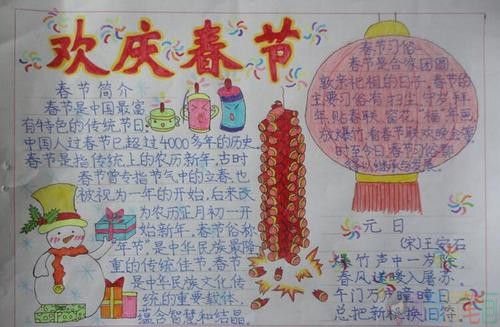 欢庆春节
春节简介
春节是中国最富
有特色的传统节日.
中国人过春节已超过4000多年的历史
春节是指传统上的农历新年.古时
春节曾专指节气中的立春.也
被视为一年的开始,后来改
为农历正月初一开
始新年.春节俗称
"年节"是中华民族最隆
重的传统佳节.春节
是中华民族文化传
统的重要载体,
蕴含智慧和结晶.
春节习俗
春节是合家团圆
敦亲祀祖的日子.春节的
主要习俗有扫尘,守岁,拜
年,贴春联、窗花、福、年画
放爆竹,看春节联欢晚会等
时至今日,春节习俗都
得以继承与发展.
元日
(宋)王安石
爆竹声中一岁除,
春风送暖入屠苏.
千门万户瞳瞳日
总把新桃换旧符.